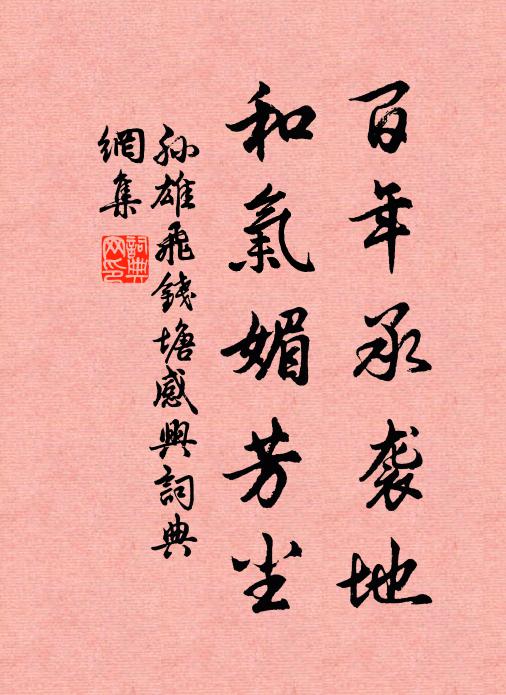 百年承袭地
和氣媚芳尘
孙雄飛錢塘感興詞典
網集
詞典
网印